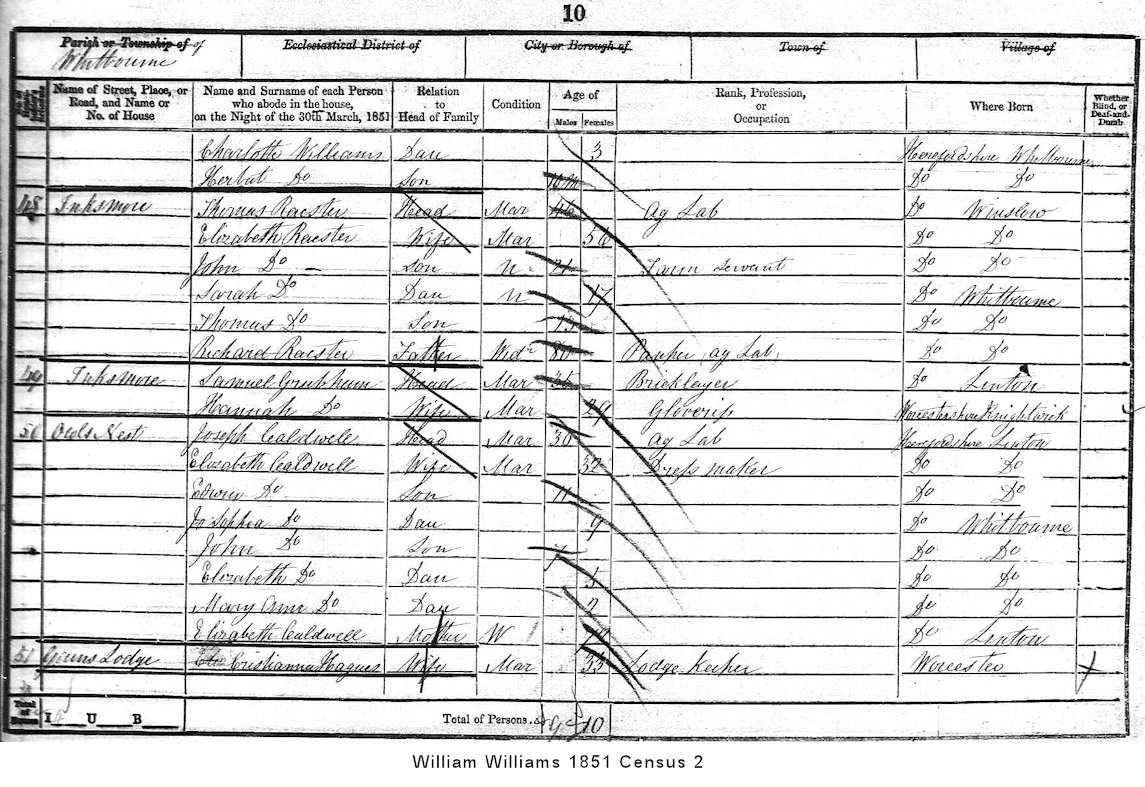 10
Parish or Township of of Ecclesiastical District of City or Borough of Town of Village of
Whitbourne
Name of Street, Place, or Road, and Name or No. of House Name and Surname of each Person who abode in the house, on the Night of the 30th March, 1851 Relation to Head of Family Condition Age of Males Females Rank, Profession, or Occupation Where Born Whether Blind, or Deaf-and-Dumb
Charlotte Williams Dau 3 Herefordshire Whitbourne
Herbert Do Son Do Do
48 Inksmore Thomas Racster Head Mar Ag Lab Do Winslow
Elizabeth Racster Wife Mar 56 Do Do
John Do Son U 21 Farm Servant Do Do
Sarah Do Dau U 17 Do Whitbourne
Thomas Do Son 13 Do Do
Richard Racster Father Wdr 80 Pauper ag Lab Do Do
49 Inksmore Samuel Grubham Head Mar 36 Bricklayer Do Linton
Hannah Do Wife Mar 29 Worcestershire Knightwick
50 Owls Nest Joseph Caldwell Head Mar 30 Ag Lab Herefordshire Linton
Elizabeth Caldwell Wife Mar 32 Dress maker Do Do
Edwin Do Son 11 Do Do
Do Dau 9 Do Whitbourne
John Do Son 7 Do Do
Elizabeth Do Dau 5 Do Do
Mary Ann Do Dau 2 Do Do
Elizabeth Caldwell Mother W Do Linton
51 Lodge Wife Mar 53 Lodge Keeper Worcester
Total of Houses I U B Total of Persons 10
William Williams 1851 Census 2